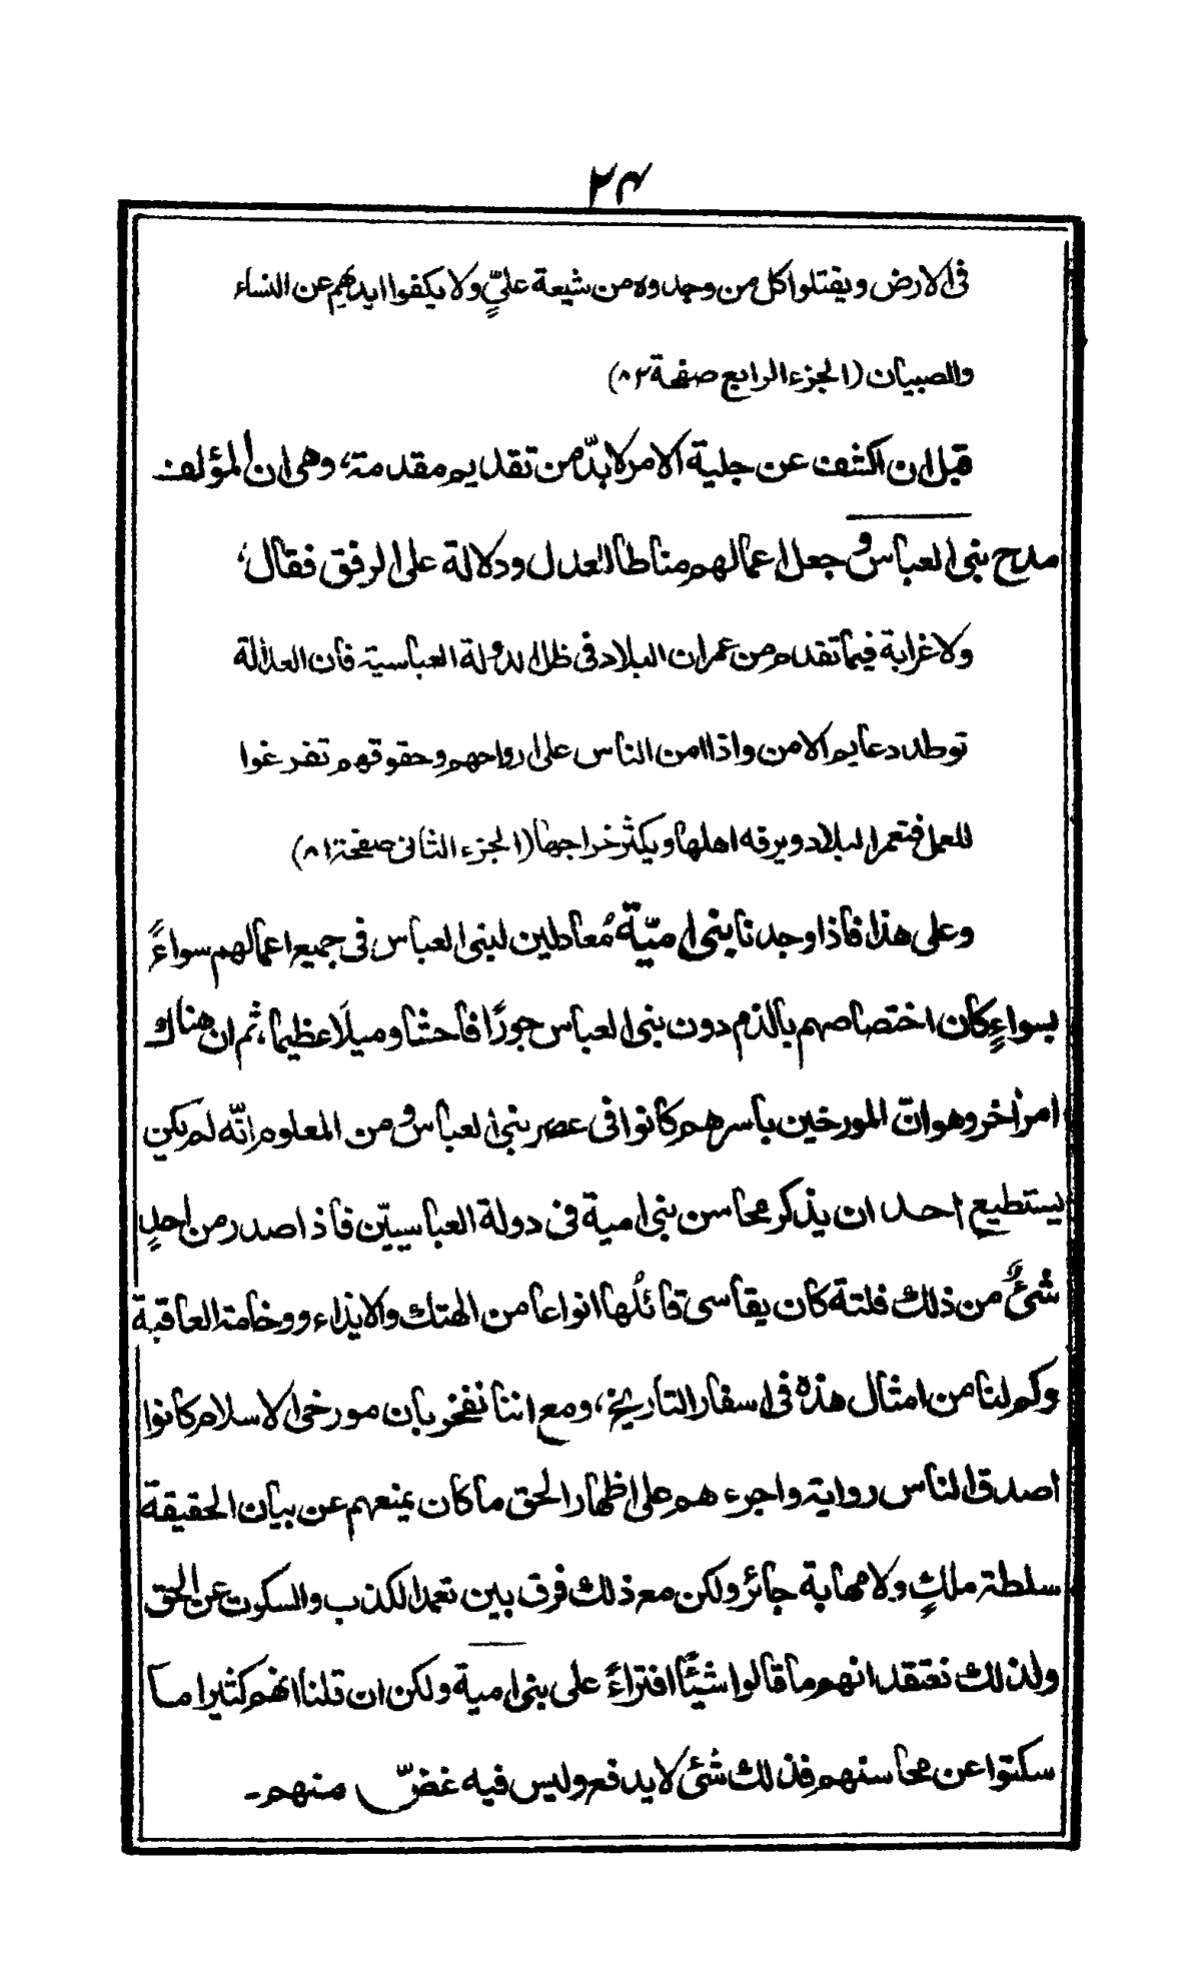 ٢٤
فى الارض ويقتلوا كل من وجدوه من شيعة عليٍّ ولا يكفوا ايديهم عن النساء
والصبيان (الجزء الرابع صفحة ٨٢)
قبل ان اكشف عن جلية الامر لابدّ من تقديم مقدمة، وهى ان المؤلف
مدح بنى العباس و جعل اعمالهم مناطا للعدل ودلالة على الرفق فقال،
ولا غرابة فيما تقدم من عمران البلاد فى ظل الدولة العباسية فان العدالة
توطد دعايم الامن واذا امن الناس على ارواحهم وحقوقهم تفرغوا
للعمل فتعمر البلاد ويرفه اهلها ويكثر خراجها (الجزء الثانى صفحة ٨١)
وعلى هذا فاذا وجدنا بنى اميّة مُعادلين لبنى العباس فى جميع اعمالهم سواءً
بسواءٍ كان اختصاصهم بالذم دون بنى العباس جورًا فاحشا وميلًا عظيما، ثم ان هناك
امرًا اخر وهو انّ المورخين باسرهم كانوا فى عصر بنى العباس و من المعلوم انّه لم يكن
يستطيع احد ان يذكر محاسن بنى امية فى دولة العباسيّين فاذا صدر من احدٍ
شئٌ من ذلك فلتة كان يقاسى قائلُها انواعا من الهتك والايذاء ووخامة العاقبة
وكم لنا من امثال هذه فى اسفار التأريخ، ومع اننا نفخر بان مورخى الاسلام كانوا
اصدق الناس رواية واجرء هم على اظهار الحق ما كان يمنعهم عن بيان الحقيقة
سلطة ملكٍ ولا مهابة جائر ولكن مع ذلك فرق بين تعمد الكذب والسكوت عن الحق
ولذلك نعتقد انهم ما قالوا شيئًا افتراءً على بنى امية ولكن ان قلنا انهم كثيرا ما
سكتوا عن محاسنهم فذلك شئ لا يدفع وليس فيه غضّ منهم۔